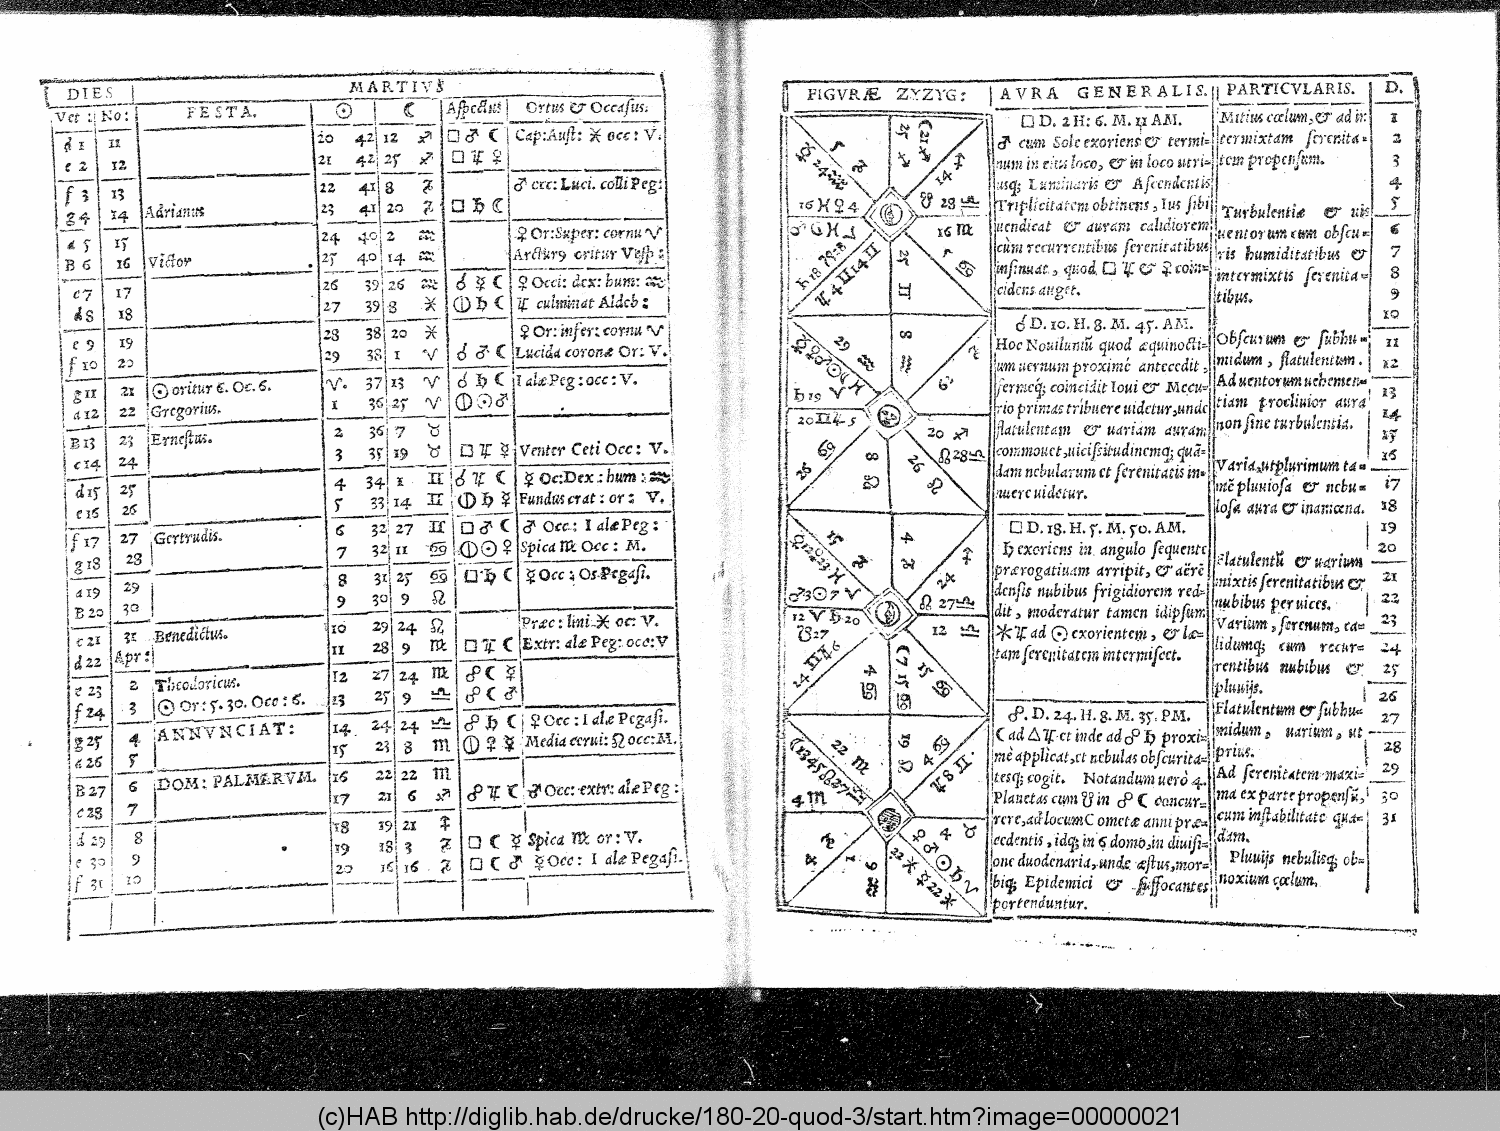 DIES MARTIVS
Vet: No: FESTA. ☉ ☾ Aspectus Ortus & Occasus.
d 1 11 20 42 12 ♐ □ ♂ ☾ Cap: Aust: ♓ occ: V.
e 2 12 21 42 25 ♐ □ ♃ ♀
f 3 13 22 41 8 ♑ ♂ occ: Luci. colli Peg:
g 4 14 Adrianus 23 41 20 ♑ □ ♄ ☾
a 5 15 24 40 2 ♒ ♀ Or: Super: cornu ♈
B 6 16 Victor 25 40 14 ♒ Arcturꝰ oritur Vesp:
c 7 17 26 39 26 ♒ ☌ ☿ ☾ ♀ Occi: dex: hum: ♒
d 8 18 27 39 8 ♓ ♄ ☾ ♃ culminat Aldeb:
e 9 19 28 38 20 ♓ ♀ Or: infer: cornu ♈
f 10 20 29 38 1 ♈ ☌ ♂ ☾ Lucida coronæ Or: V.
g 11 21 ☉ oritur 6. Oc. 6. ♈. 37 13 ♈ ☌ ♄ ☾ I alæ Peg: occ: V.
a 12 22 Gregorius. 1 36 25 ♈ ☉ ♂
B 13 23 Ernestus. 2 36 7 ♉
c 14 24 3 35 19 ♉ □ ♃ ☿ Venter Ceti Occ: V.
d 15 25 4 34 1 ♊ ☌ ♃ ☾ ☿ Oc: Dex: hum: ♒
e 16 26 5 33 14 ♊ ♄ ☿ Fundus crat: or: V.
f 17 27 Gertrudis. 6 32 27 ♊ □ ♂ ☾ ♂ Occ: I alæ Peg:
g 18 28 7 32 11 ♋ ☉ ♀ Spica ♍ Occ: M.
a 19 29 8 31 25 ♋ □ ♄ ☾ ☿ Occ: Os Pegasi.
B 20 30 9 30 9 ♌
c 21 31 Benedictus. 10 29 24 ♌ Præc: lini ♓ oc: V.
d 22 Apr: 11 28 9 ♍ □ ♃ ☾ Extr: alæ Peg: occ: V
e 23 2 Theodoricus. 12 27 24 ♍ ☍ ☾ ☿
f 24 3 ☉ Or: 5. 30. Occ: 6. 13 25 9 ♎ ☍ ☾ ♂
g 25 4 ANNVNCIAT: 14 24 24 ♎ ☍ ♄ ☾ ♀ Occ: I alæ Pegasi.
a 26 5 15 23 8 ♏ ♀ ☿ Media cerui: ♌ occ: M.
B 27 6 DOM: PALMERVM. 16 22 22 ♏
c 28 7 17 21 6 ♐ ☍ ♃ ☾ ♂ Occ: extr: alæ Peg:
d 29 8 18 19 21 ♐
e 30 9 19 18 3 ♑ □ ☾ ☿ Spica ♍ or: V.
f 31 10 20 16 16 ♑ □ ☾ ♂ ☿ Occ: I alæ Pegasi.
FIGVRÆ ZYZYG:
AVRA GENERALIS.
□ D. 2 H: 6. M. 11 AM.
♂ cum Sole exoriens & termi=
num in eius loco, & in loco utri=
usq; Luminaris & Ascendentis
Triplicitatem obtinens, Ius sibi
uendicat & auram calidiorem
cum recurrentibus serenitatibus
insinuat, quod □ ♃ & ♀ coin=
cidens auget.
☌ D. 10. H. 8. M. 45. AM.
Hoc Nouiluniũ quod æquinocti=
um uernum proximè antecedit,
fermeq; coincidit Ioui & Mecu=
rio primas tribuere uidetur, unde
flatulentam & uariam auram
commouet, uicissitudinemq; quã=
dam nebularum et serenitatis in=
nuere uidetur.
□ D. 18. H. 5. M. 50. AM.
♄ exoriens in angulo sequente
prærogatiuam arripit, & aërẽ
densis nubibus frigidiorem red=
dit, moderatur tamen idipsum
✶ ♃ ad ☉ exorientem, & læ=
tam serenitatem intermiscet.
☍. D. 24. H. 8. M. 35. PM.
☾ ad △ ♃ et inde ad ☍ ♄ proxi=
mè applicat, et nebulas obscurita=
tesq; cogit. Notandum uerò 4.
Planetas cum ☋ in ☍ ☾ concur=
rere, ad locum Cometæ anni præ=
cedentis, idq; in 6 domo, in diuisi=
one duodenaria, unde æstus, mor=
biq; Epidemici & suffocantes
portenduntur.
PARTICVLARIS. D.
Mitius cœlum, & ad in
termixtam serenita=
tem propensum.
Turbulentiæ & uis
uentorum cum obscu=
ris humiditatibus &
intermixtis serenita=
tibus.
Obscurum & subhu=
midum, flatulentum.
Ad uentorum uehemen=
tiam procliuior aura
non sine turbulentia.
Varia, ut plurimum ta=
mẽ pluuiosa & nebu=
losa aura & inamœna.
Flatulentũ & uarium
mixtis serenitatibus &
nubibus peruices.
Varium, serenum, ca=
lidumq; cum recur=
rentibus nubibus &
pluuijs.
Flatulentum & subhu=
midum, uarium, ut
prius.
Ad serenitatem maxi=
ma ex parte propensũ,
cum instabilitate quа=
dam.
Pluuijs nebulisq; ob=
noxium cœlum.
1
2
3
4
5
6
7
8
9
10
11
12
13
14
15
16
17
18
19
20
21
22
23
24
25
26
27
28
29
30
31
(c)HAB http://diglib.hab.de/drucke/180-20-quod-3/start.htm?image=00000021